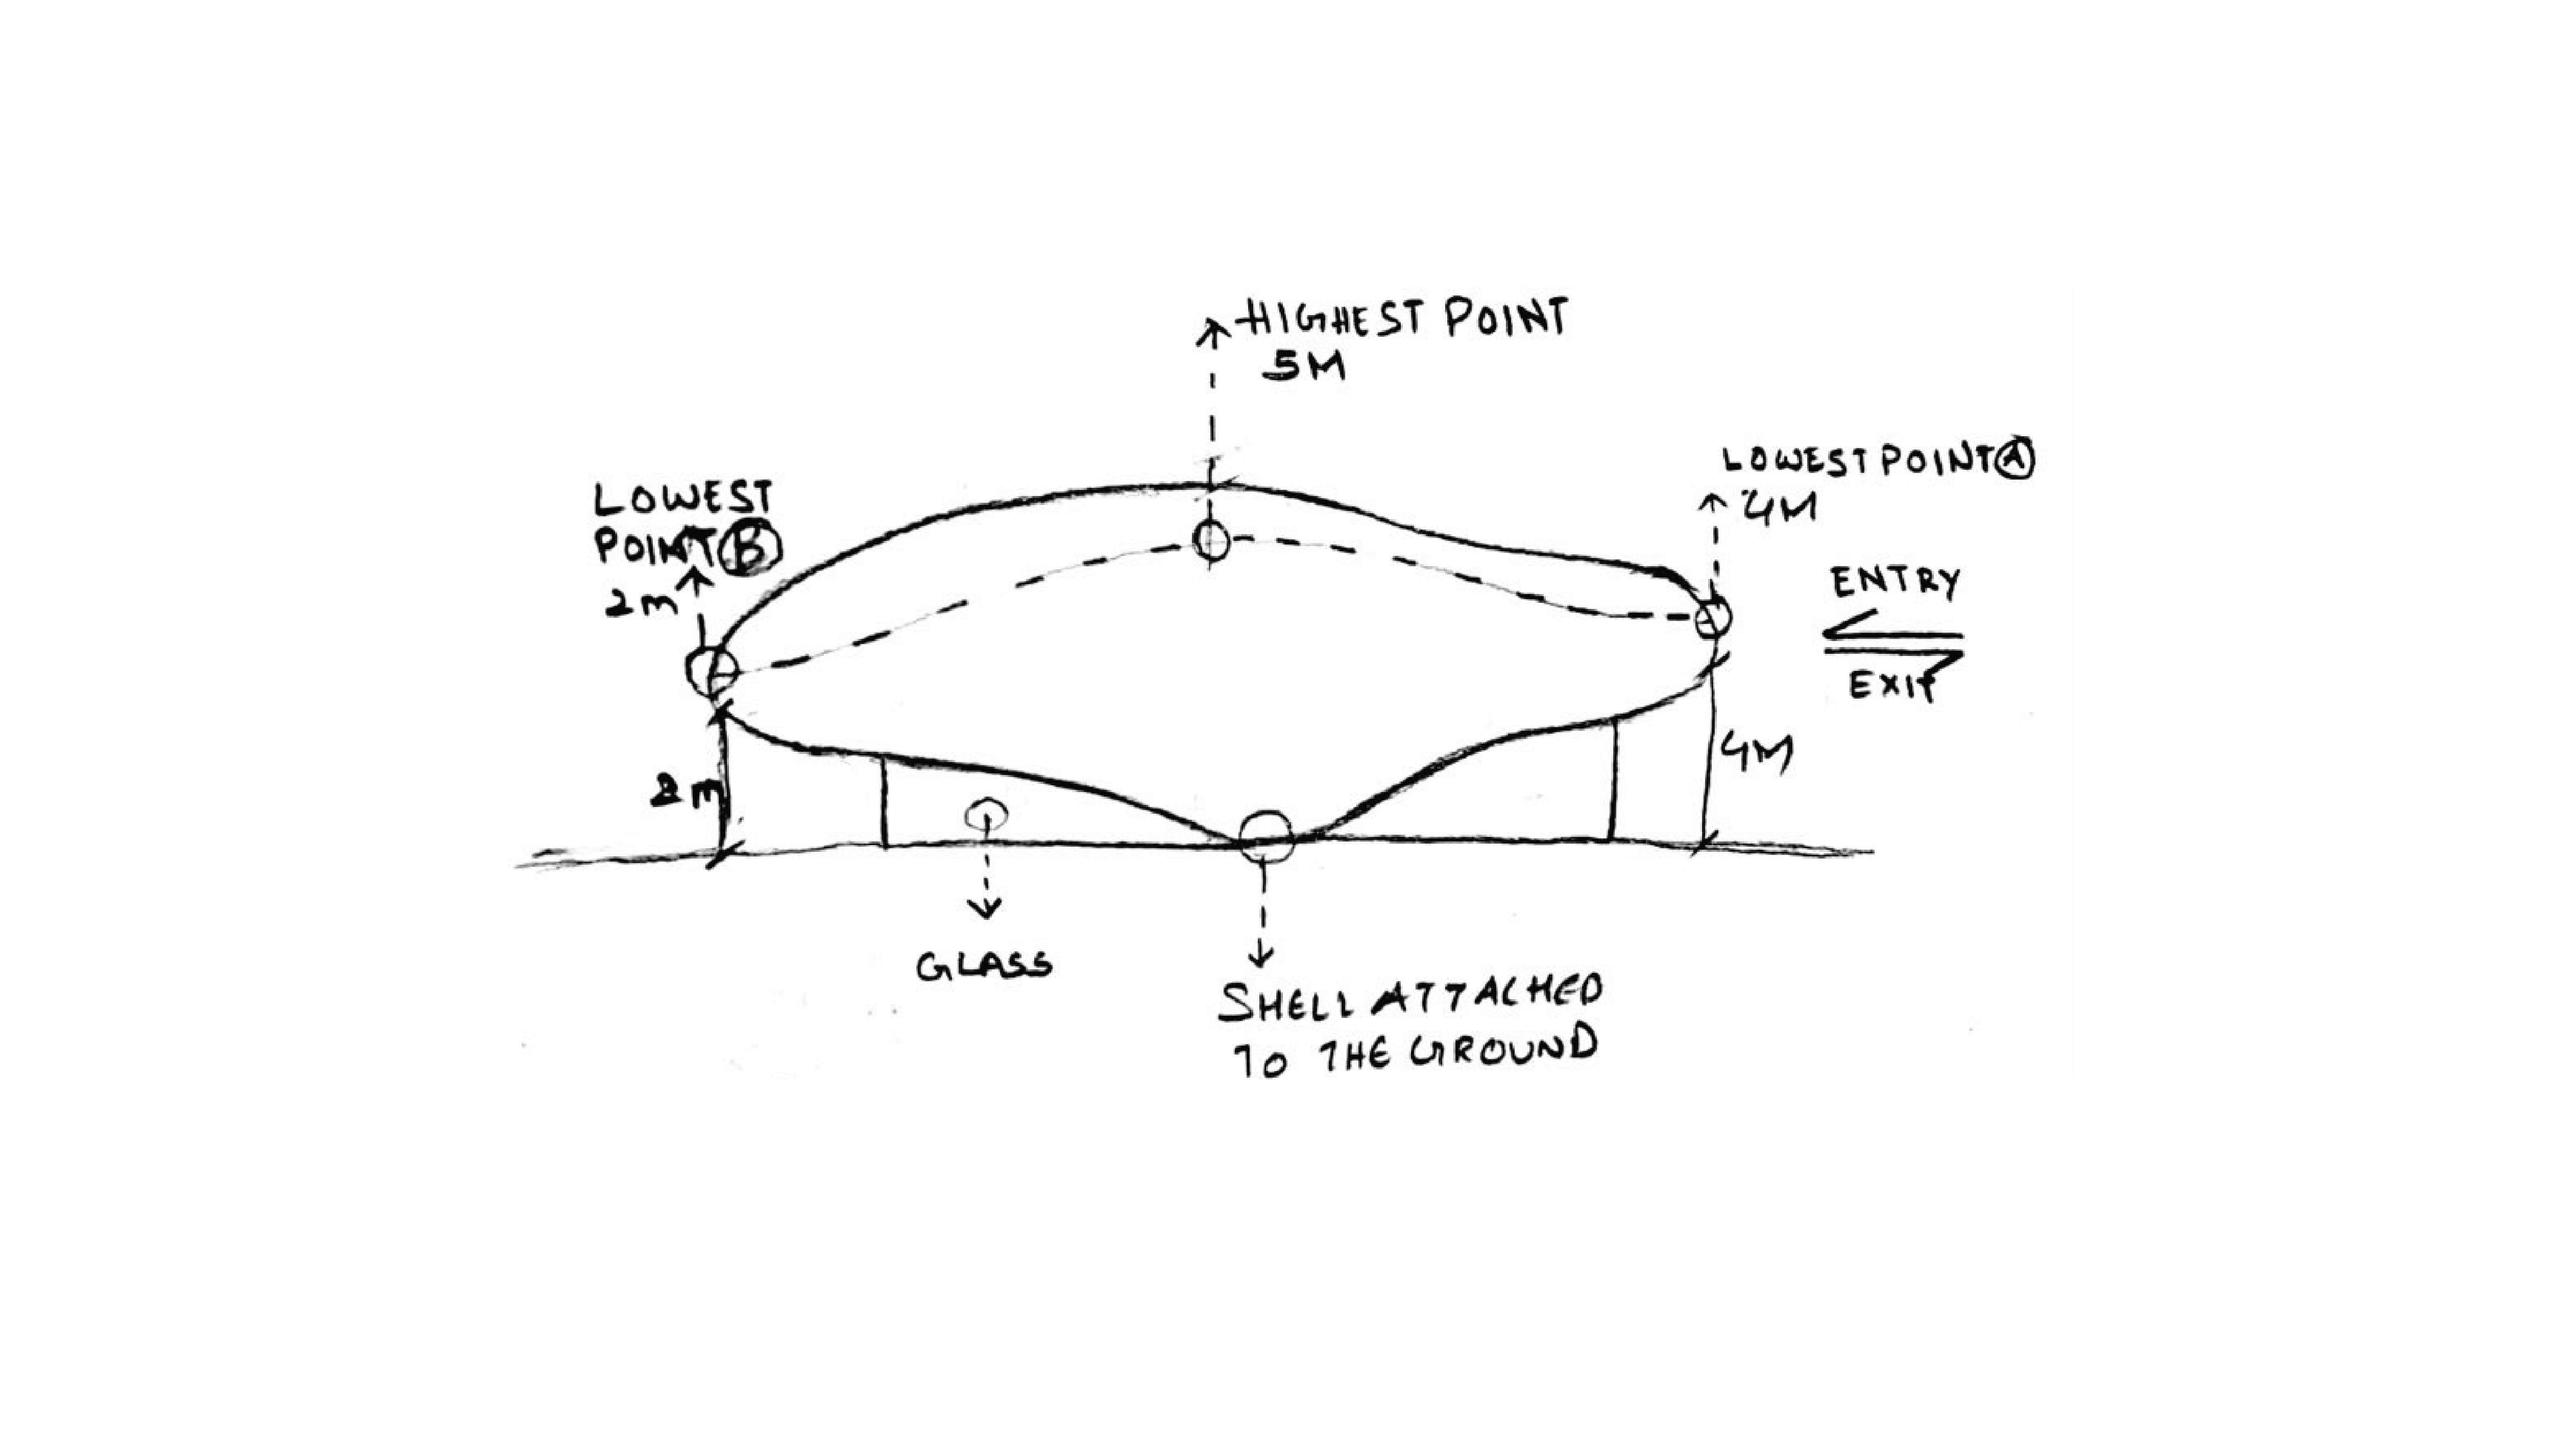 HIGHEST POINT
5M
LOWEST POINT Ⓐ
4M
LOWEST
POINT Ⓑ
2m
ENTRY
EXIT
2m
4M
GLASS
SHELL ATTACHED
TO THE GROUND